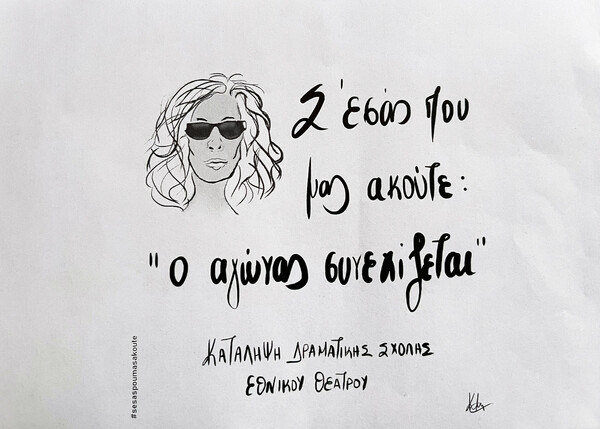 Σ'εσάς που
μας ακούτε:
"ο αγώνας συνεχίζεται"
ΚΑΤΑΛΗΨΗ ΔΡΑΜΑΤΙΚΗΣ ΣΧΟΛΗΣ
ΕΘΝΙΚΟΥ ΘΕΑΤΡΟΥ
#sesaspoumasakoute